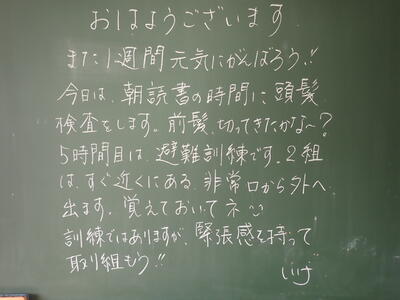 おはようございます
また1週間元気にがんばろう!!
今日は、朝読書の時間に頭髪
検査をします。前髪、切ってきたかな～?
5時間目は、避難訓練です。2組
は、すぐ近くにある、非常口から外へ
出ます。覚えておいてネ
訓練ではありますが、緊張感を持って
取り組もう!!